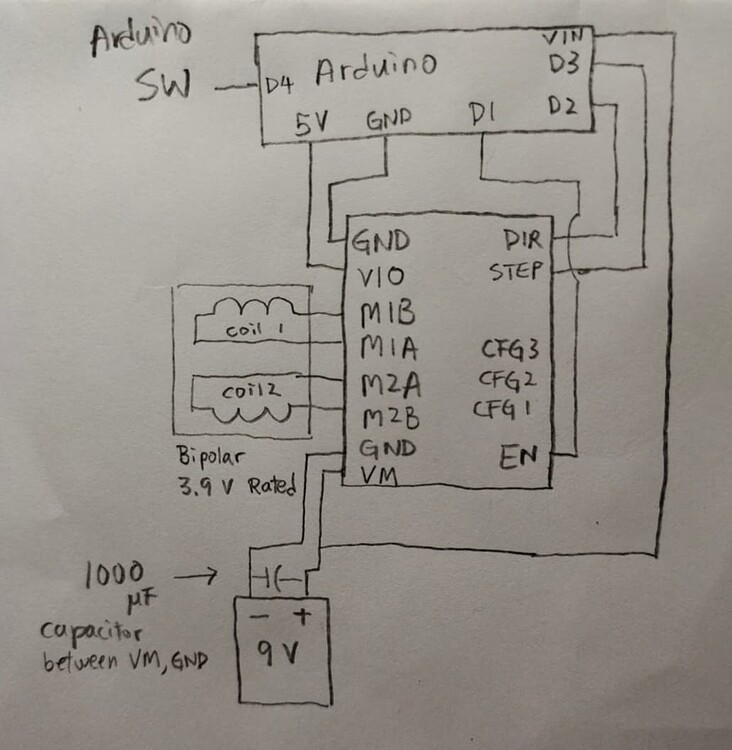 Arduino
SW
D4
Arduino
VIN
D3
D2
5V
GND
D1
GND
VIO
M1B
M1A
M2A
M2B
GND
VM
DIR
STEP
CFG3
CFG2
CFG1
EN
coil 1
coil2
Bipolar
3.9 V Rated
1000
μF
capacitor
between VM, GND
- +
9V